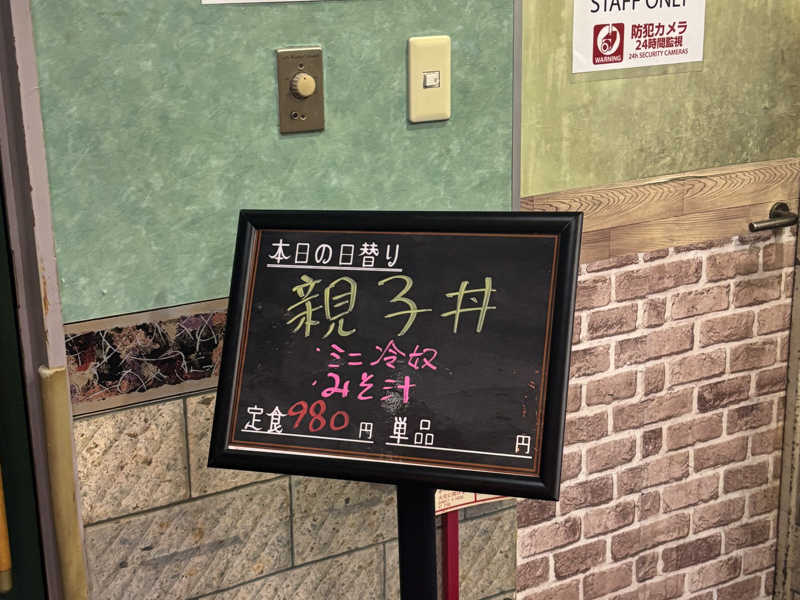 STAFF ONLY
防犯カメラ
24時間監視
WARNING
24h SECURITY CAMERAS
本日の日替り
親子丼
・ミニ冷奴
・みそ汁
定食980円 単品 円